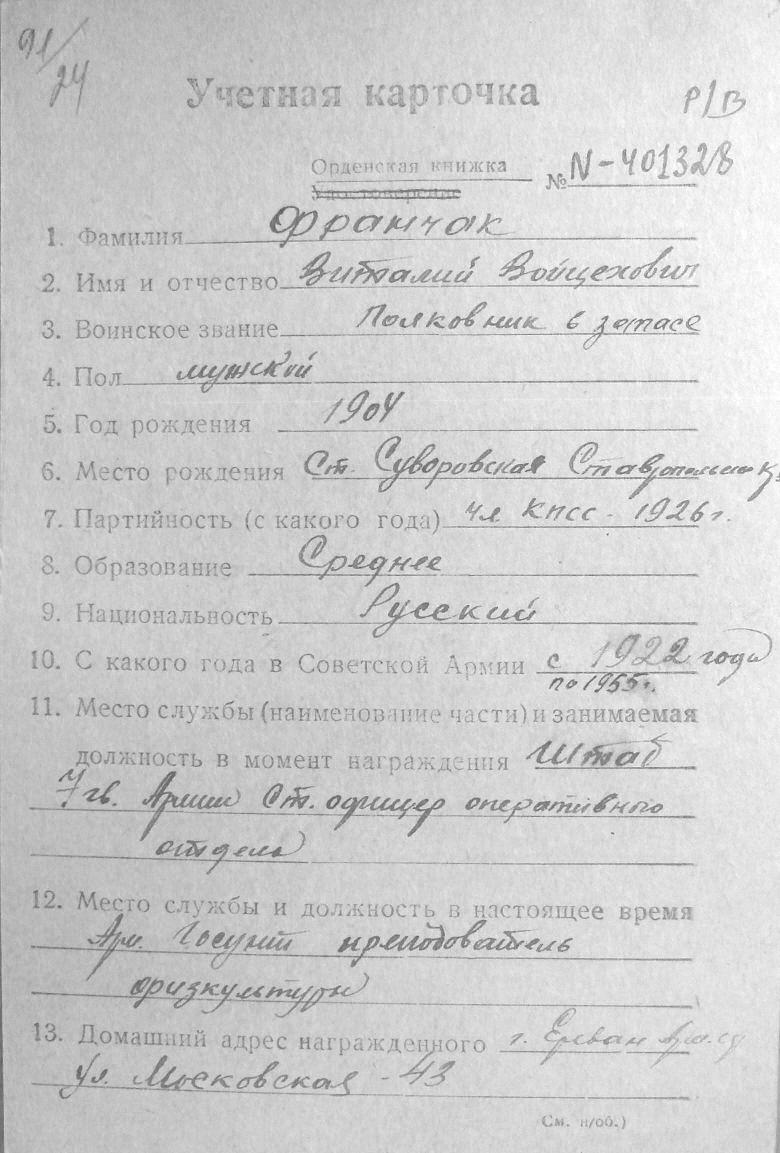 91/24
Учетная карточка
Р/В
Орденская книжка
Удостоверение
№ N-401328
1. Фамилия Франчак
2. Имя и отчество Виталий Войцехович
3. Воинское звание Полковник в запасе
4. Пол мужской
5. Год рождения 1904
6. Место рождения Ст. Суворовская Ставропольск. Кр.
7. Партийность (с какого года) чл КПСС - 1926 г.
8. Образование Среднее
9. Национальность Русский
10. С какого года в Советской Армии с 1922 года
по 1955 г.
11. Место службы (наименование части) и занимаемая
должность в момент награждения Штаб
7 гв. Армии Ст. офицер оперативного
отдела
12. Место службы и должность в настоящее время
Арм. Госунт преподователь
физкультуры
13. Домашний адрес награжденного г. Ереван
ул. Московская - 43
См. н/об.)